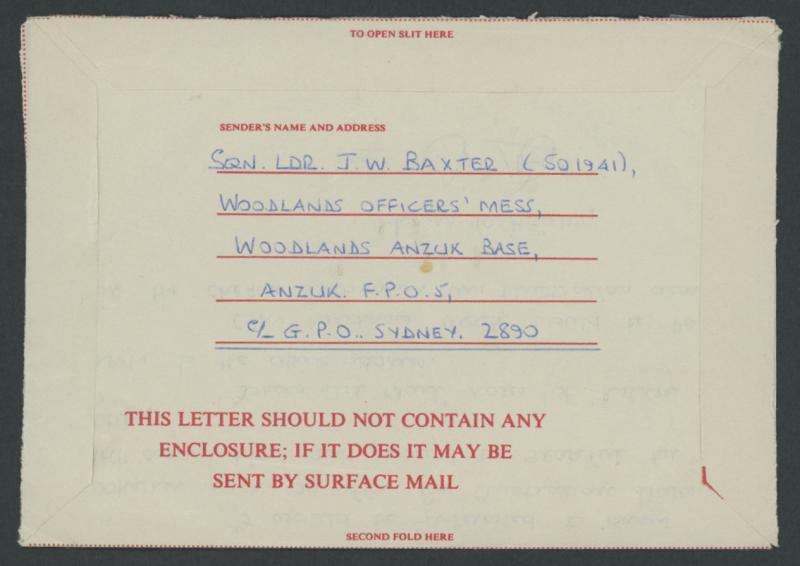 TO OPEN SLIT HERE
SENDER'S NAME AND ADDRESS
SQN. LDR. J.W. BAXTER (501941),
WOODLANDS OFFICERS' MESS,
WOODLANDS ANZUK BASE,
ANZUK. F.P.O.5,
C/- G.P.O.. SYDNEY. 2890
THIS LETTER SHOULD NOT CONTAIN ANY
ENCLOSURE; IF IT DOES IT MAY BE
SENT BY SURFACE MAIL
SECOND FOLD HERE